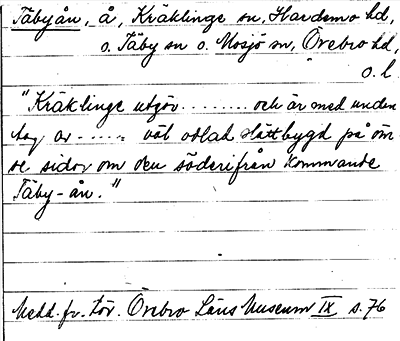 Täbyån, å, Kräklinge sn, Hardemo hd,
o. Täby sn o. Mosjö sn, Örebro hd,
Ö. l.
"Kräklinge utgör ........ och är med undan
tag av ...... väl odlad slättbygd på öm
se sidor om den söderifrån kommande
Täby-ån."
Medd. fr. För. Örebro Läns Museum IX s. 76